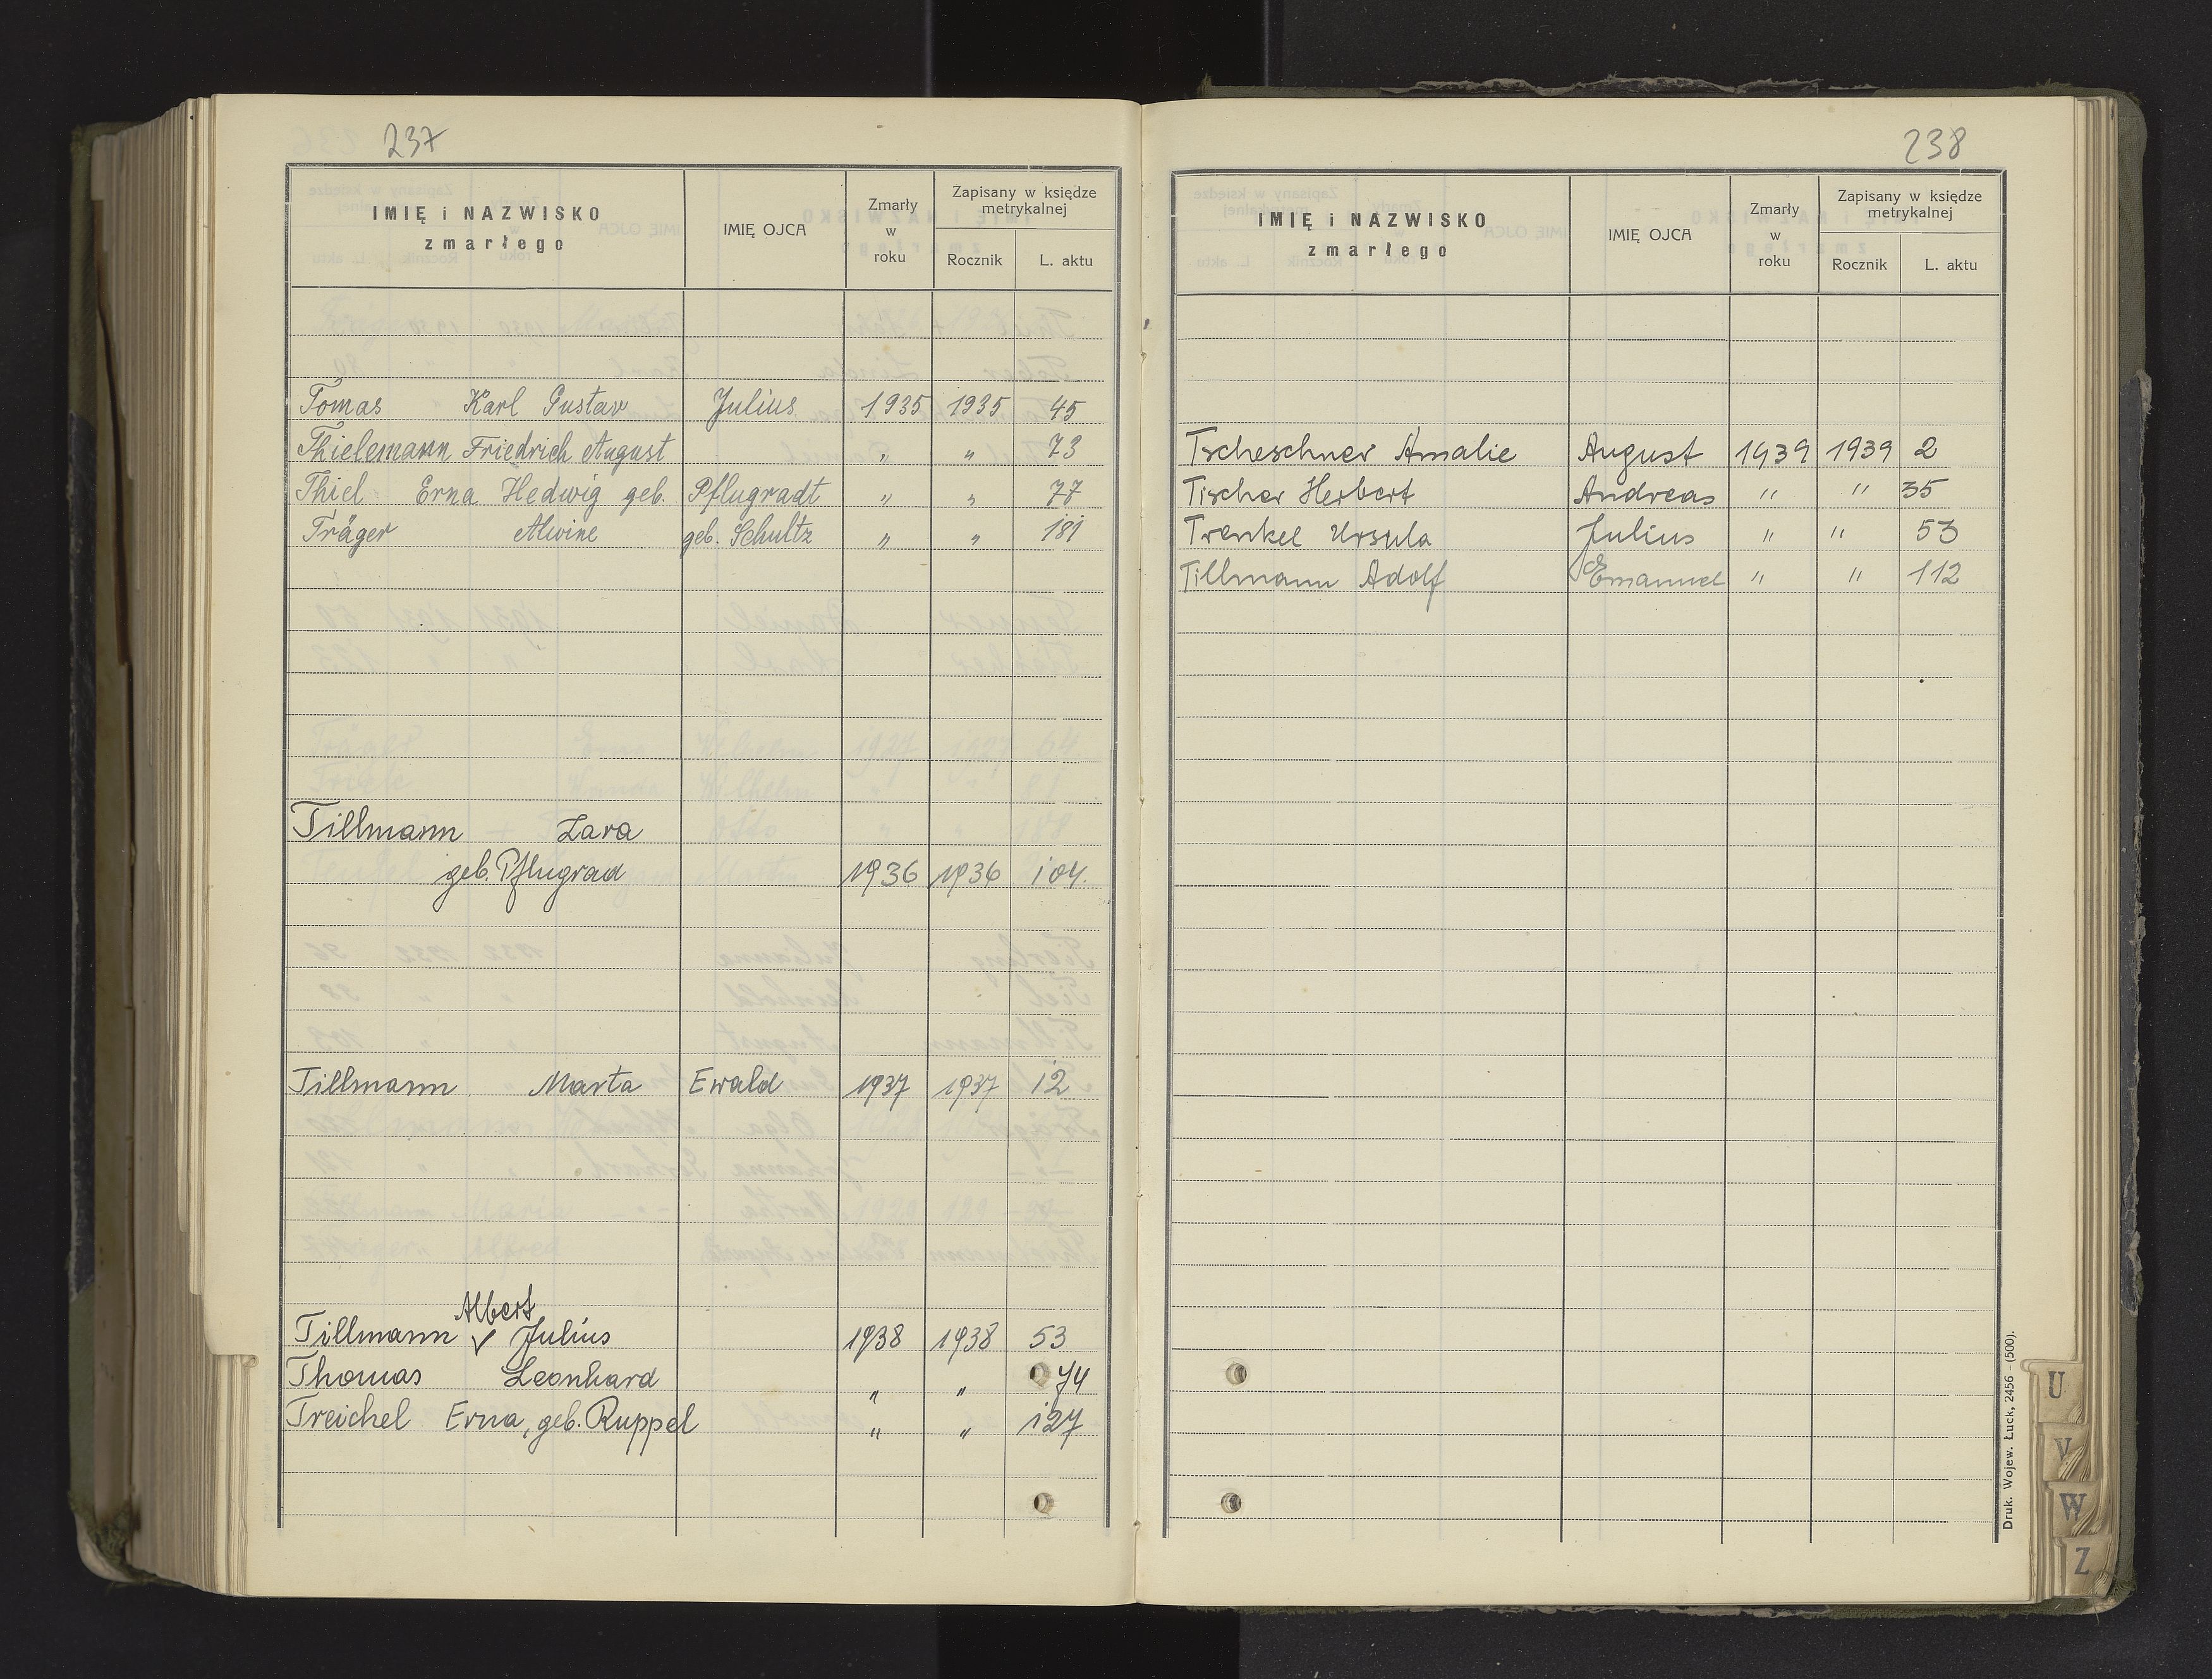 237
IMIĘ i NAZWISKO zmarłego IMIĘ OJCA Zmarły w roku Zapisany w księdze metrykalnej Rocznik L. aktu
Tomas Karl Gustav Julius 1935 1935 45
Thielemann Friedrich August " " 73
Thiel Erna Hedwig geb. Pflugradt " " 77
Träger Alwine geb. Schultz " " 181
Tillmann Lara
geb. Pflugrad 1936 1936 104.
Tillmann Marta Ewald 1937 1937 12
Albert
Tillmann √ Julius 1938 1938 53
Thomas Leonhard " " 74
Treichel Erna, geb. Ruppel " " 127
238
IMIĘ i NAZWISKO zmarłego IMIĘ OJCA Zmarły w roku Zapisany w księdze metrykalnej Rocznik L. aktu
Tscheschner Amalie August 1939 1939 2
Tischer Herbert Andreas " " 35
Trenkel Ursula Julius " " 53
Tillmann Adolf Emanuel " " 112
Druk. Wojew. Łuck, 2456 – (500).
U
V
W
Z